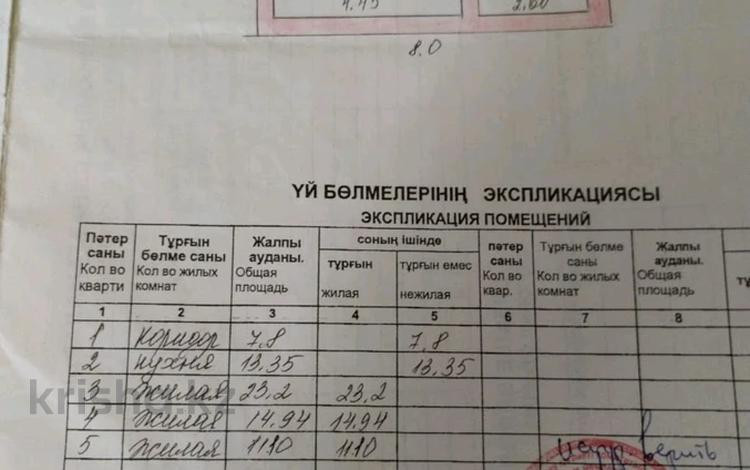 4.45 2.60
8.0
ҮЙ БӨЛМЕЛЕРІНІҢ ЭКСПЛИКАЦИЯСЫ
ЭКСПЛИКАЦИЯ ПОМЕЩЕНИЙ
Пәтер саны Кол во кварти
Тұрғын бөлме саны Кол во жилых комнат
Жалпы ауданы. Общая площадь
соның ішінде
тұрғын жилая
тұрғын емес нежилая
пәтер саны Кол во квар.
Тұрғын бөлме саны Кол во жилых комнат
Жалпы ауданы. Общая площадь
1 2 3 4 5 6 7 8
1 Коридор 7,8 7,8
2 кухня 13.35 13.35
3 жилая 23,2 23,2
4 жилая 14.94 14.94
5 жилая 11.10 11.10
krisha.kz
верить